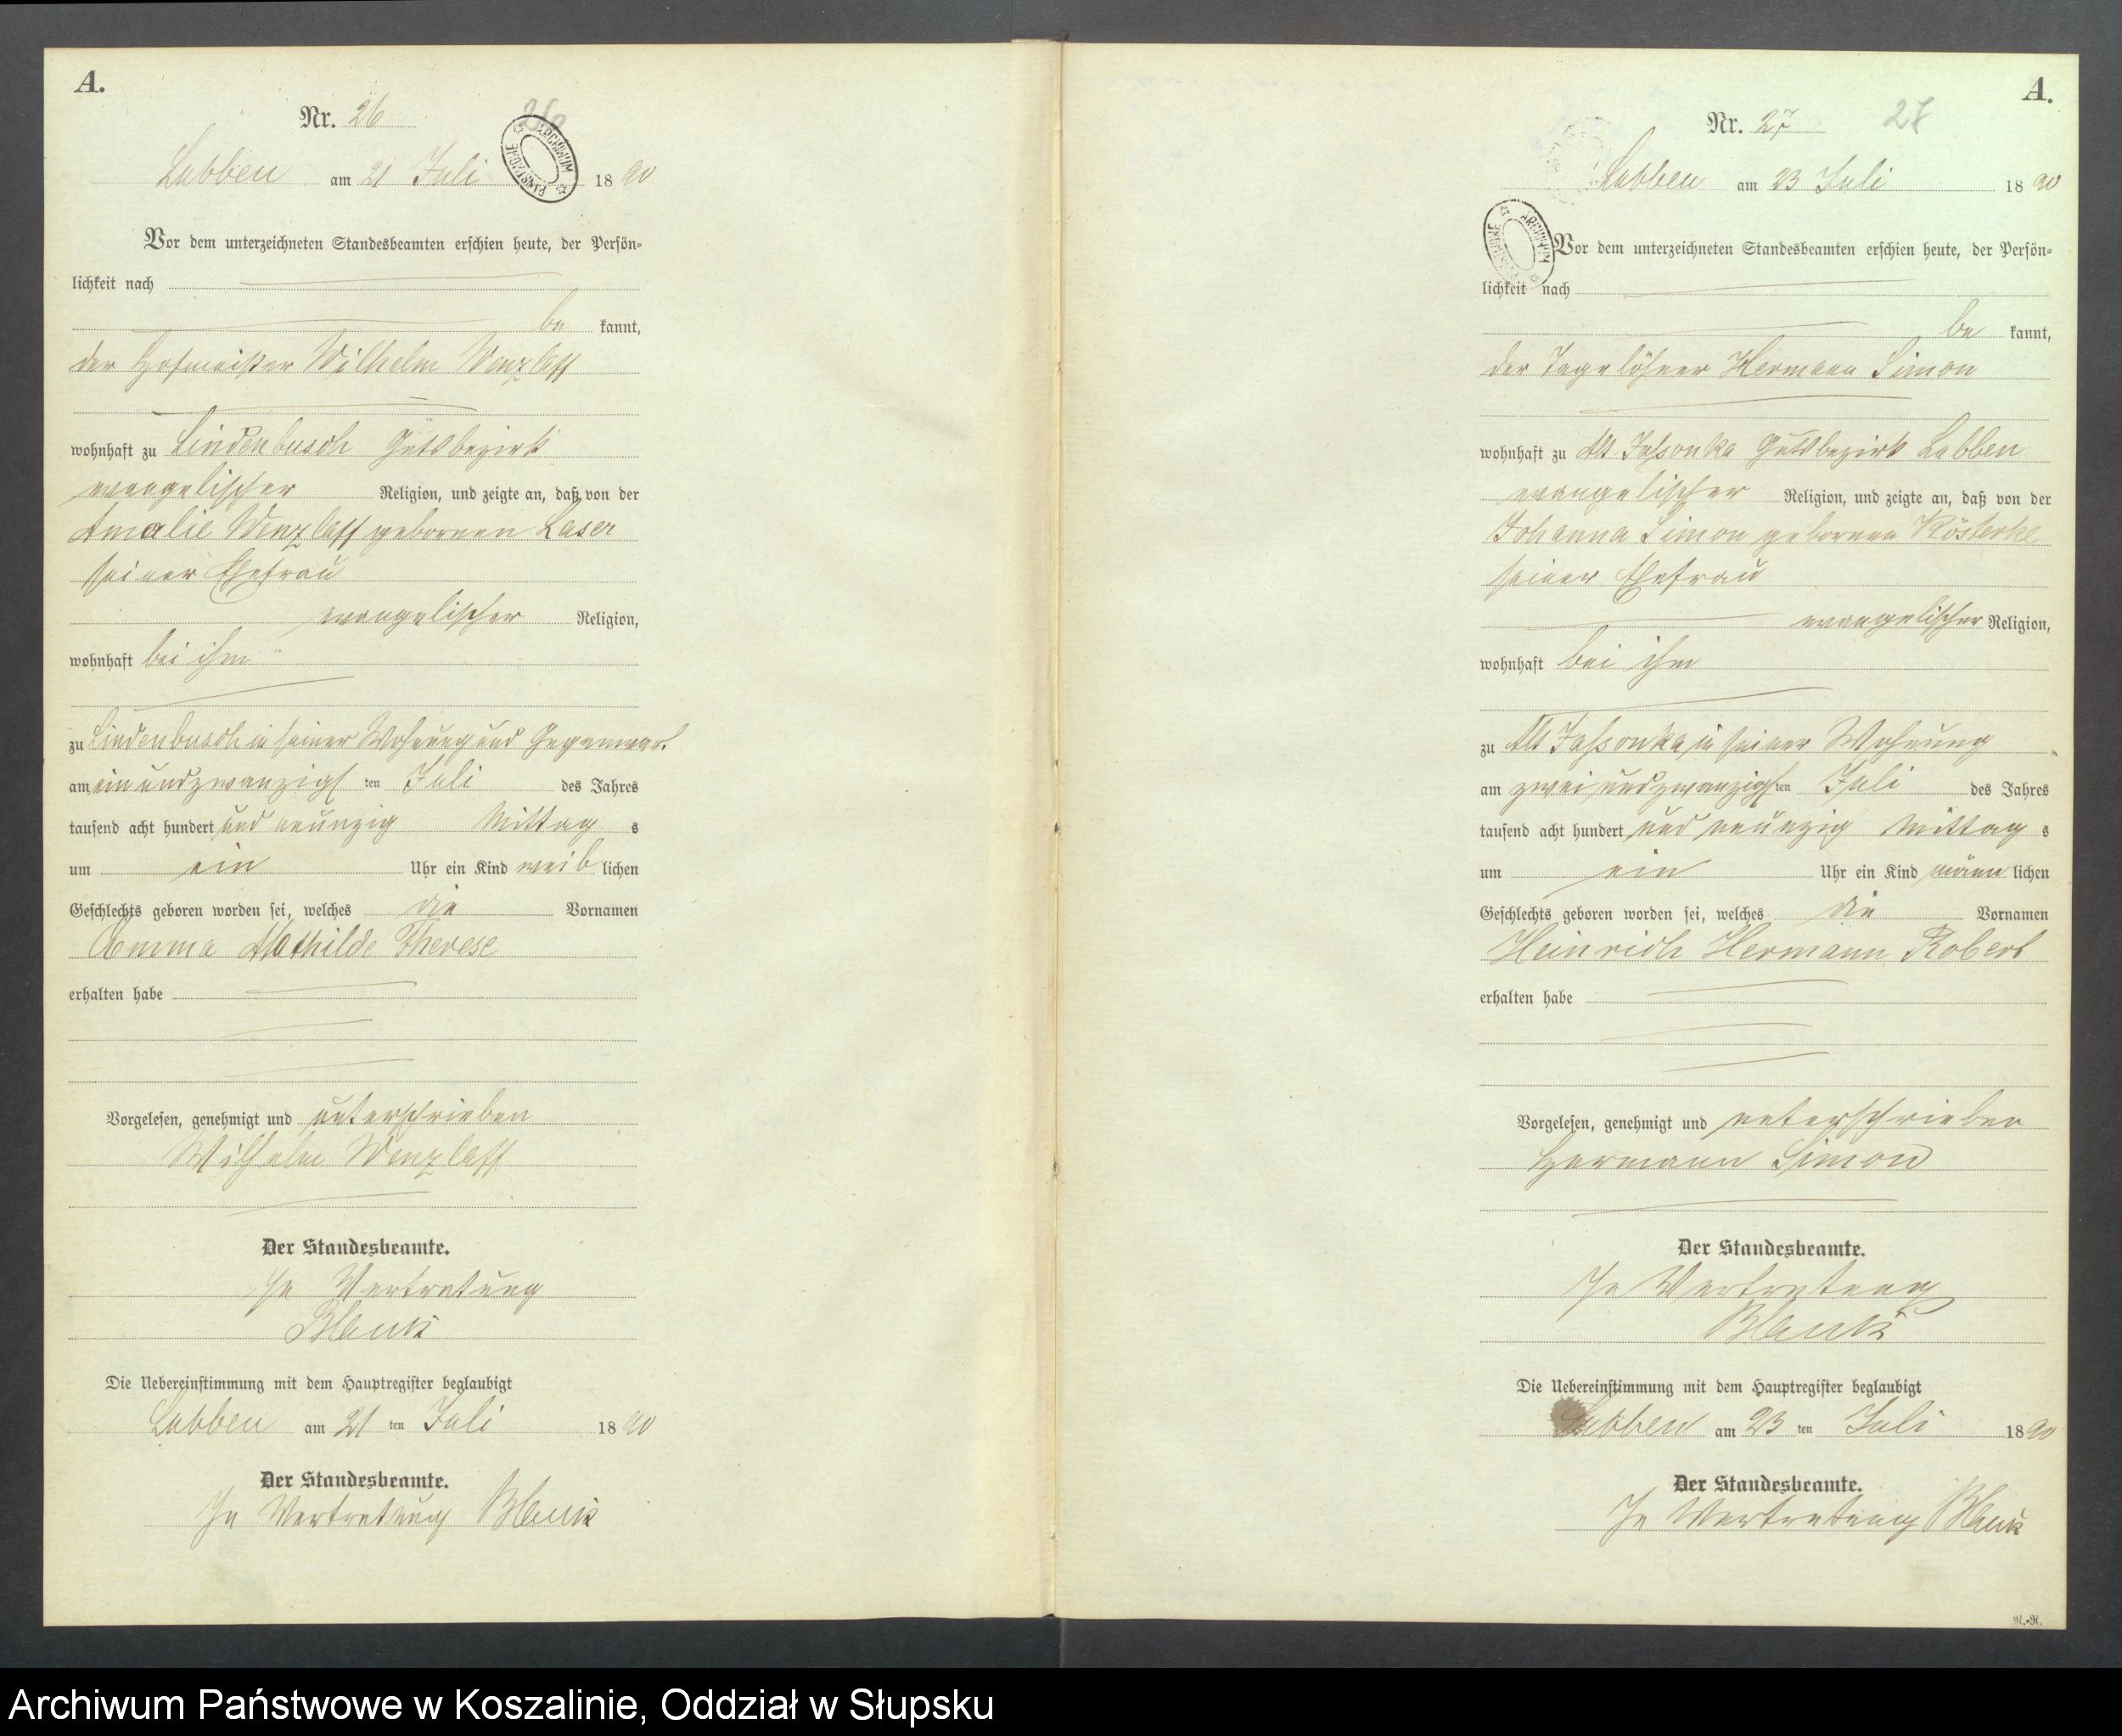 A.
Nr. 26
26
ARCHIWUM PAŃSTWOWE
Labben am 21 Juli 1890
Vor dem unterzeichneten Standesbeamten erschien heute, der Persön=
lichkeit nach
be kannt,
der Hofmeister Wilhelm Wenzlaff
wohnhaft zu Lindenbusch Gutsbezirk
evangelischer Religion, und zeigte an, daß von der
Amalie Wenzlaff gebornen Laser
seiner Ehefrau
evangelischer Religion,
wohnhaft bei ihm
zu Lindenbusch in seiner Wohnung und Gegenwart
am ein und zwanzigsten Juli des Jahres
tausend acht hundert und neunzig Mittags
um ein Uhr ein Kind weiblichen
Geschlechts geboren worden sei, welches die Vornamen
Emma Mathilde Therese
erhalten habe
Vorgelesen, genehmigt und unterschrieben
Wilhelm Wenzlaff
Der Standesbeamte.
In Vertretung
Blank
Die Uebereinstimmung mit dem Hauptregister beglaubigt
Labben am 21 ten Juli 1890
Der Standesbeamte.
In Vertretung Blank
A.
Nr. 27
27
Labben am 23 Juli 1890
ARCHIWUM PAŃSTWOWE
Vor dem unterzeichneten Standesbeamten erschien heute, der Persön=
lichkeit nach
be kannt,
der Tagelöhner Hermann Simon
wohnhaft zu Alt Jassonka Gutsbezirk Labben
evangelischer Religion, und zeigte an, daß von der
Johanna Simon gebornen Kösterke
seiner Ehefrau
evangelischer Religion,
wohnhaft bei ihm
zu Alt Jassonka in seiner Wohnung
am zwei und zwanzigsten Juli des Jahres
tausend acht hundert und neunzig Mittags
um ein Uhr ein Kind männlichen
Geschlechts geboren worden sei, welches die Vornamen
Heinrich Hermann Robert
erhalten habe
Vorgelesen, genehmigt und unterschrieben
Hermann Simon
Der Standesbeamte.
In Vertretung
Blank
Die Uebereinstimmung mit dem Hauptregister beglaubigt
Labben am 23 ten Juli 1890
Der Standesbeamte.
In Vertretung Blank
R.=R.
Archiwum Państwowe w Koszalinie, Oddział w Słupsku